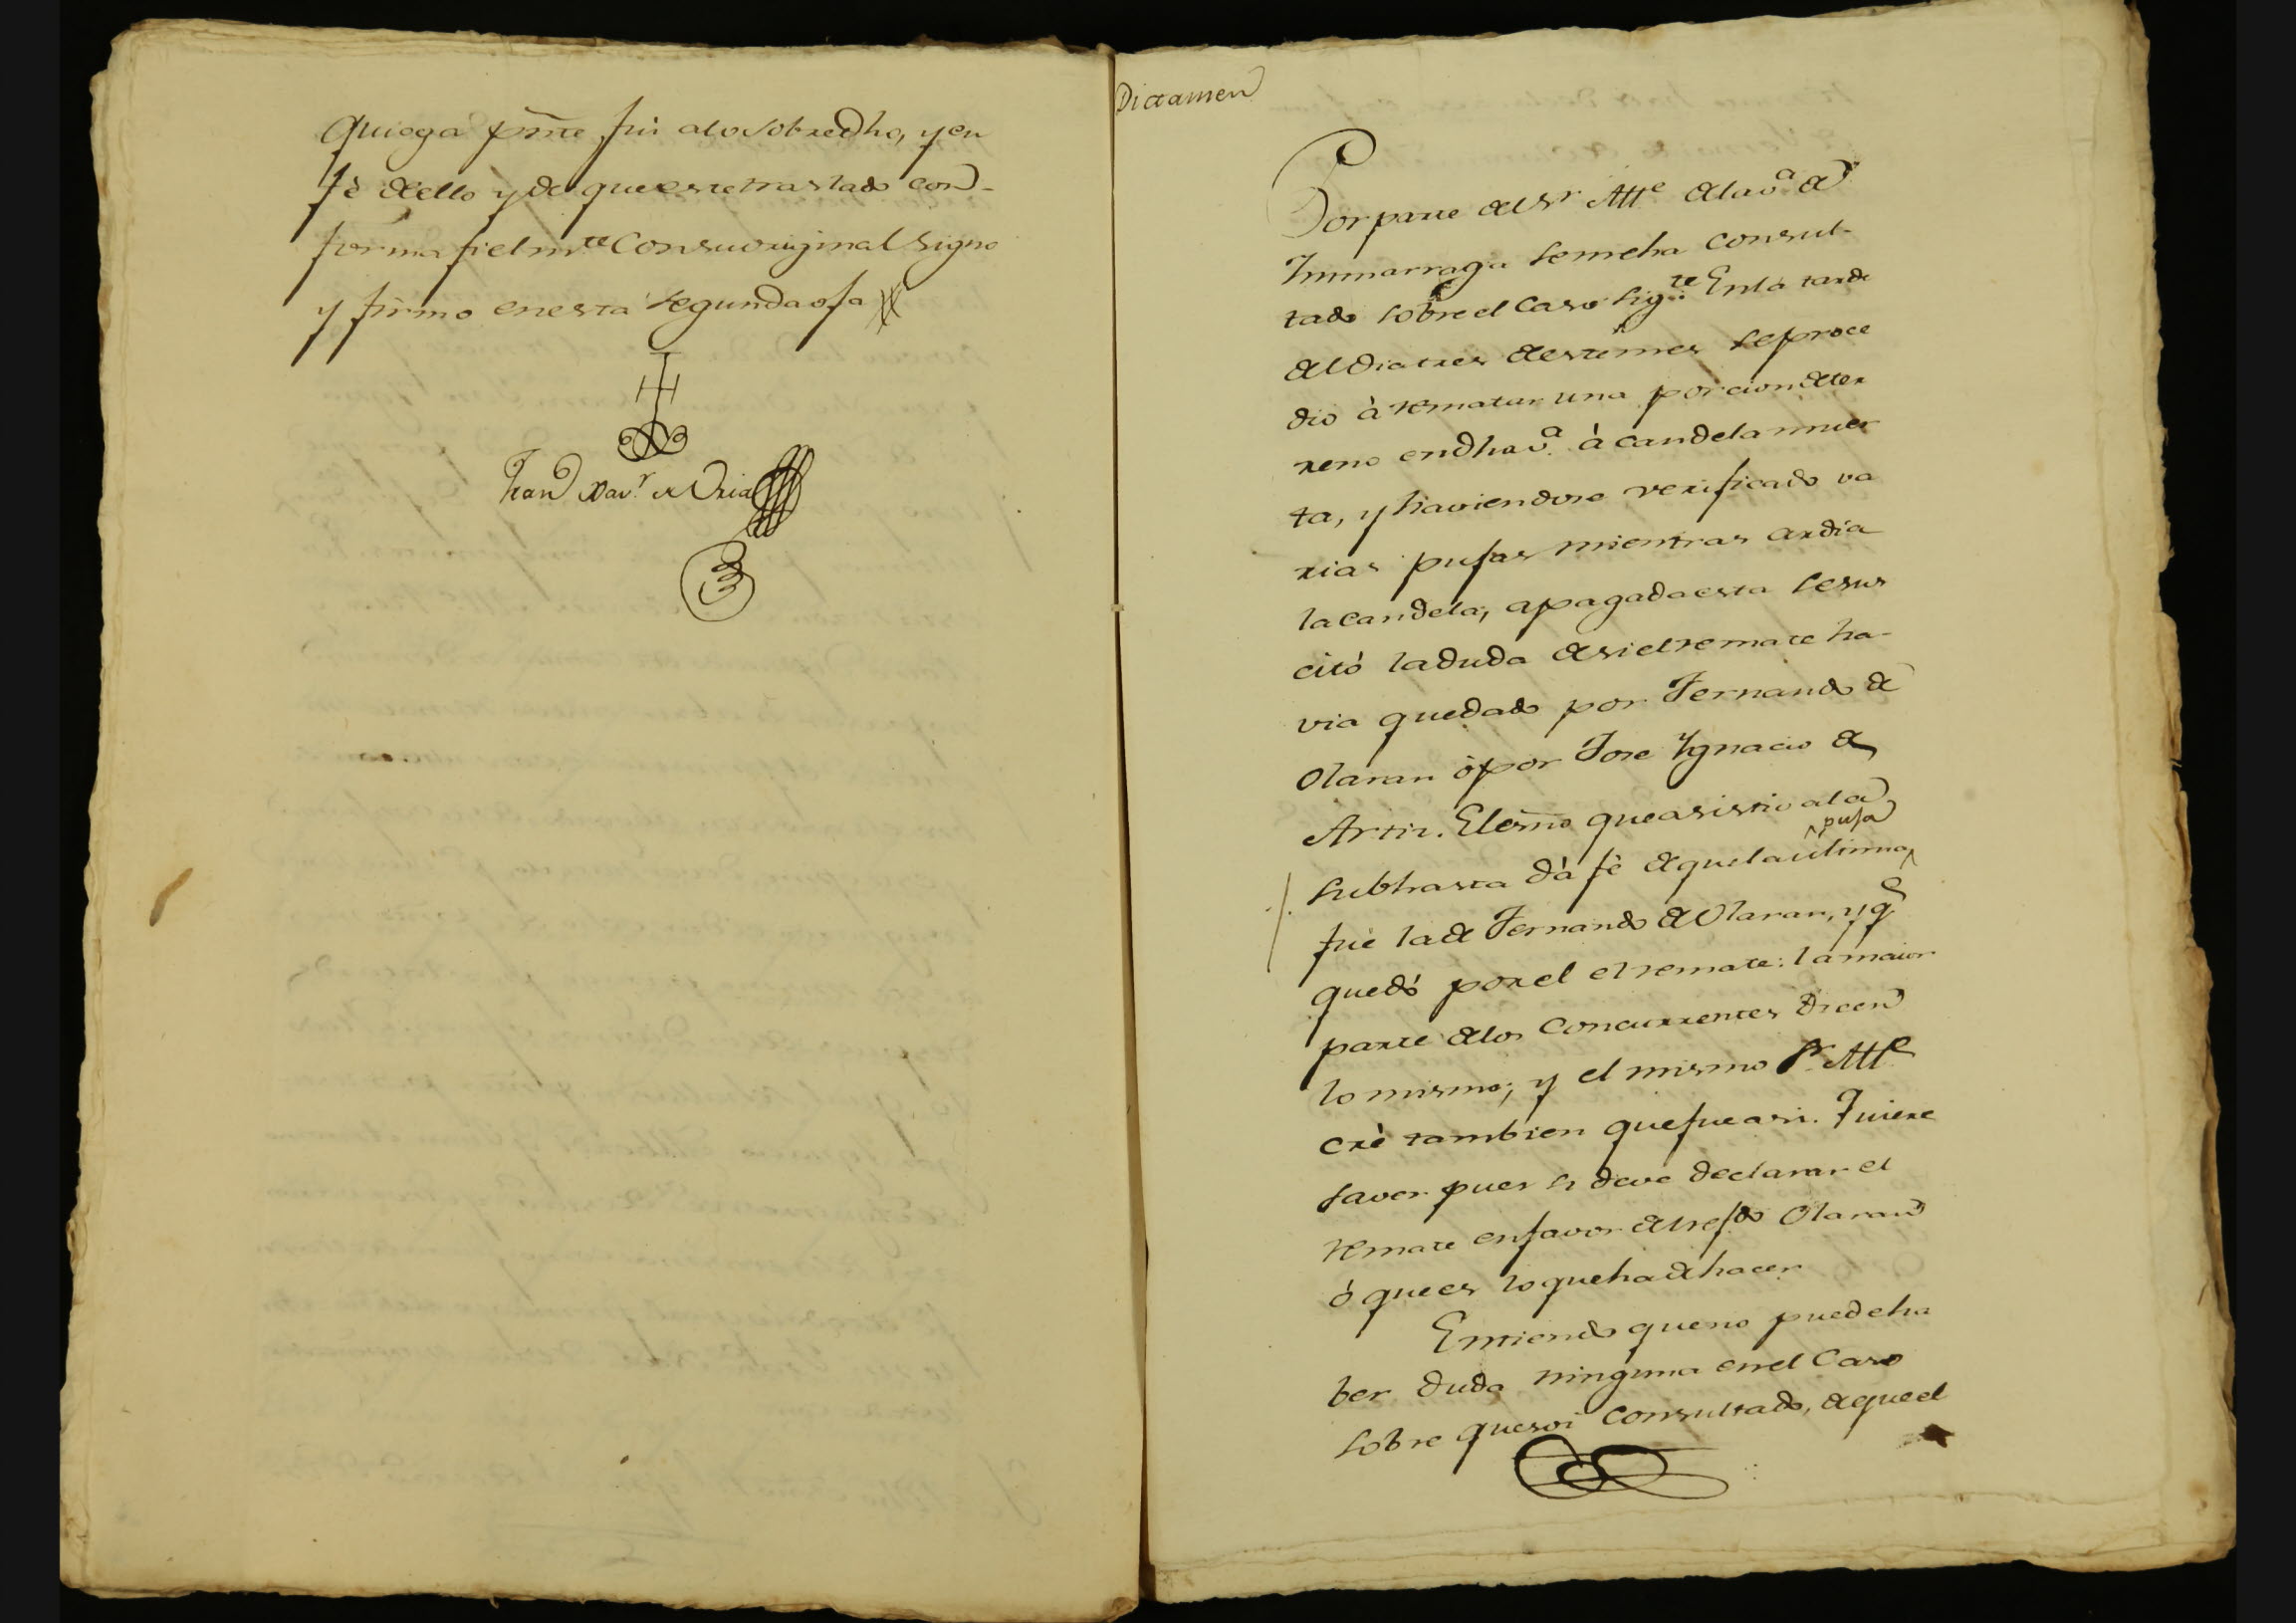 quioga pñte fui alo sobredho, y en
fè de ello y de que este traslado con-
forma fielmte con su original Signo
y firmo en esta segunda oja
Fran Xavr de Oria
Dictamen
Por parte del Sr Alle de la va de
Zumarraga se me ha consul-
tado sobre el caso sigte En la tarde
del dia tres de este mes se proce
dio à rematar una porcion de ter
reno en dha va à candela muer
ta, y haviendose verificado va
rias pujas mientras ardia
la candela, apagada esta se sus
citó la duda de si el remate ha-
via quedado por Fernando de
Olaran ò por Jose Ygnacio de
Artiz. El esno que asistio a la
puja
subhasta dà fè de que la ultima
fue la de Fernando de Olaran, y q
quedó por el el remate: la maior
parte de los concurrentes dicen
lo mismo; y el mismo Sr Alle
cre tambien que fue asi. Quiere
saver pues si deve declarar el
remate en favor del refdo Olaran
ó que es lo que ha de hacer
Entiendo que no puede ha
ber duda ninguna en el caso
sobre que soi consultado, de que el